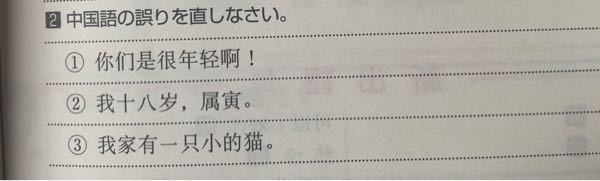 2 中国語の誤りを直しなさい。
① 你们是很年轻啊！
② 我十八岁，属寅。
③ 我家有一只小的猫。